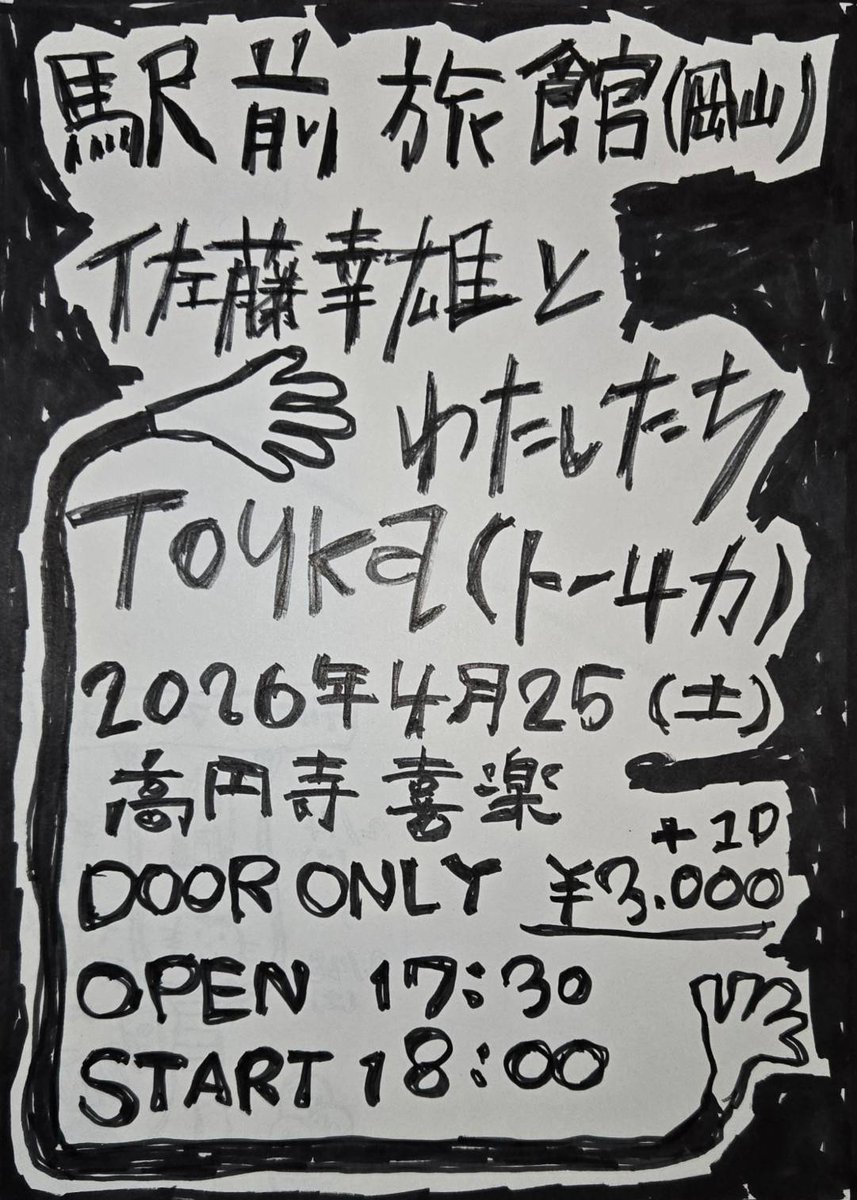 駅前旅館(岡山)
佐藤幸雄と
わたしたち
Toyka(トーチカ)
2026年4月25(土)
高円寺 喜楽
+1D
DOOR ONLY ¥3.000
OPEN 17:30
START 18:00